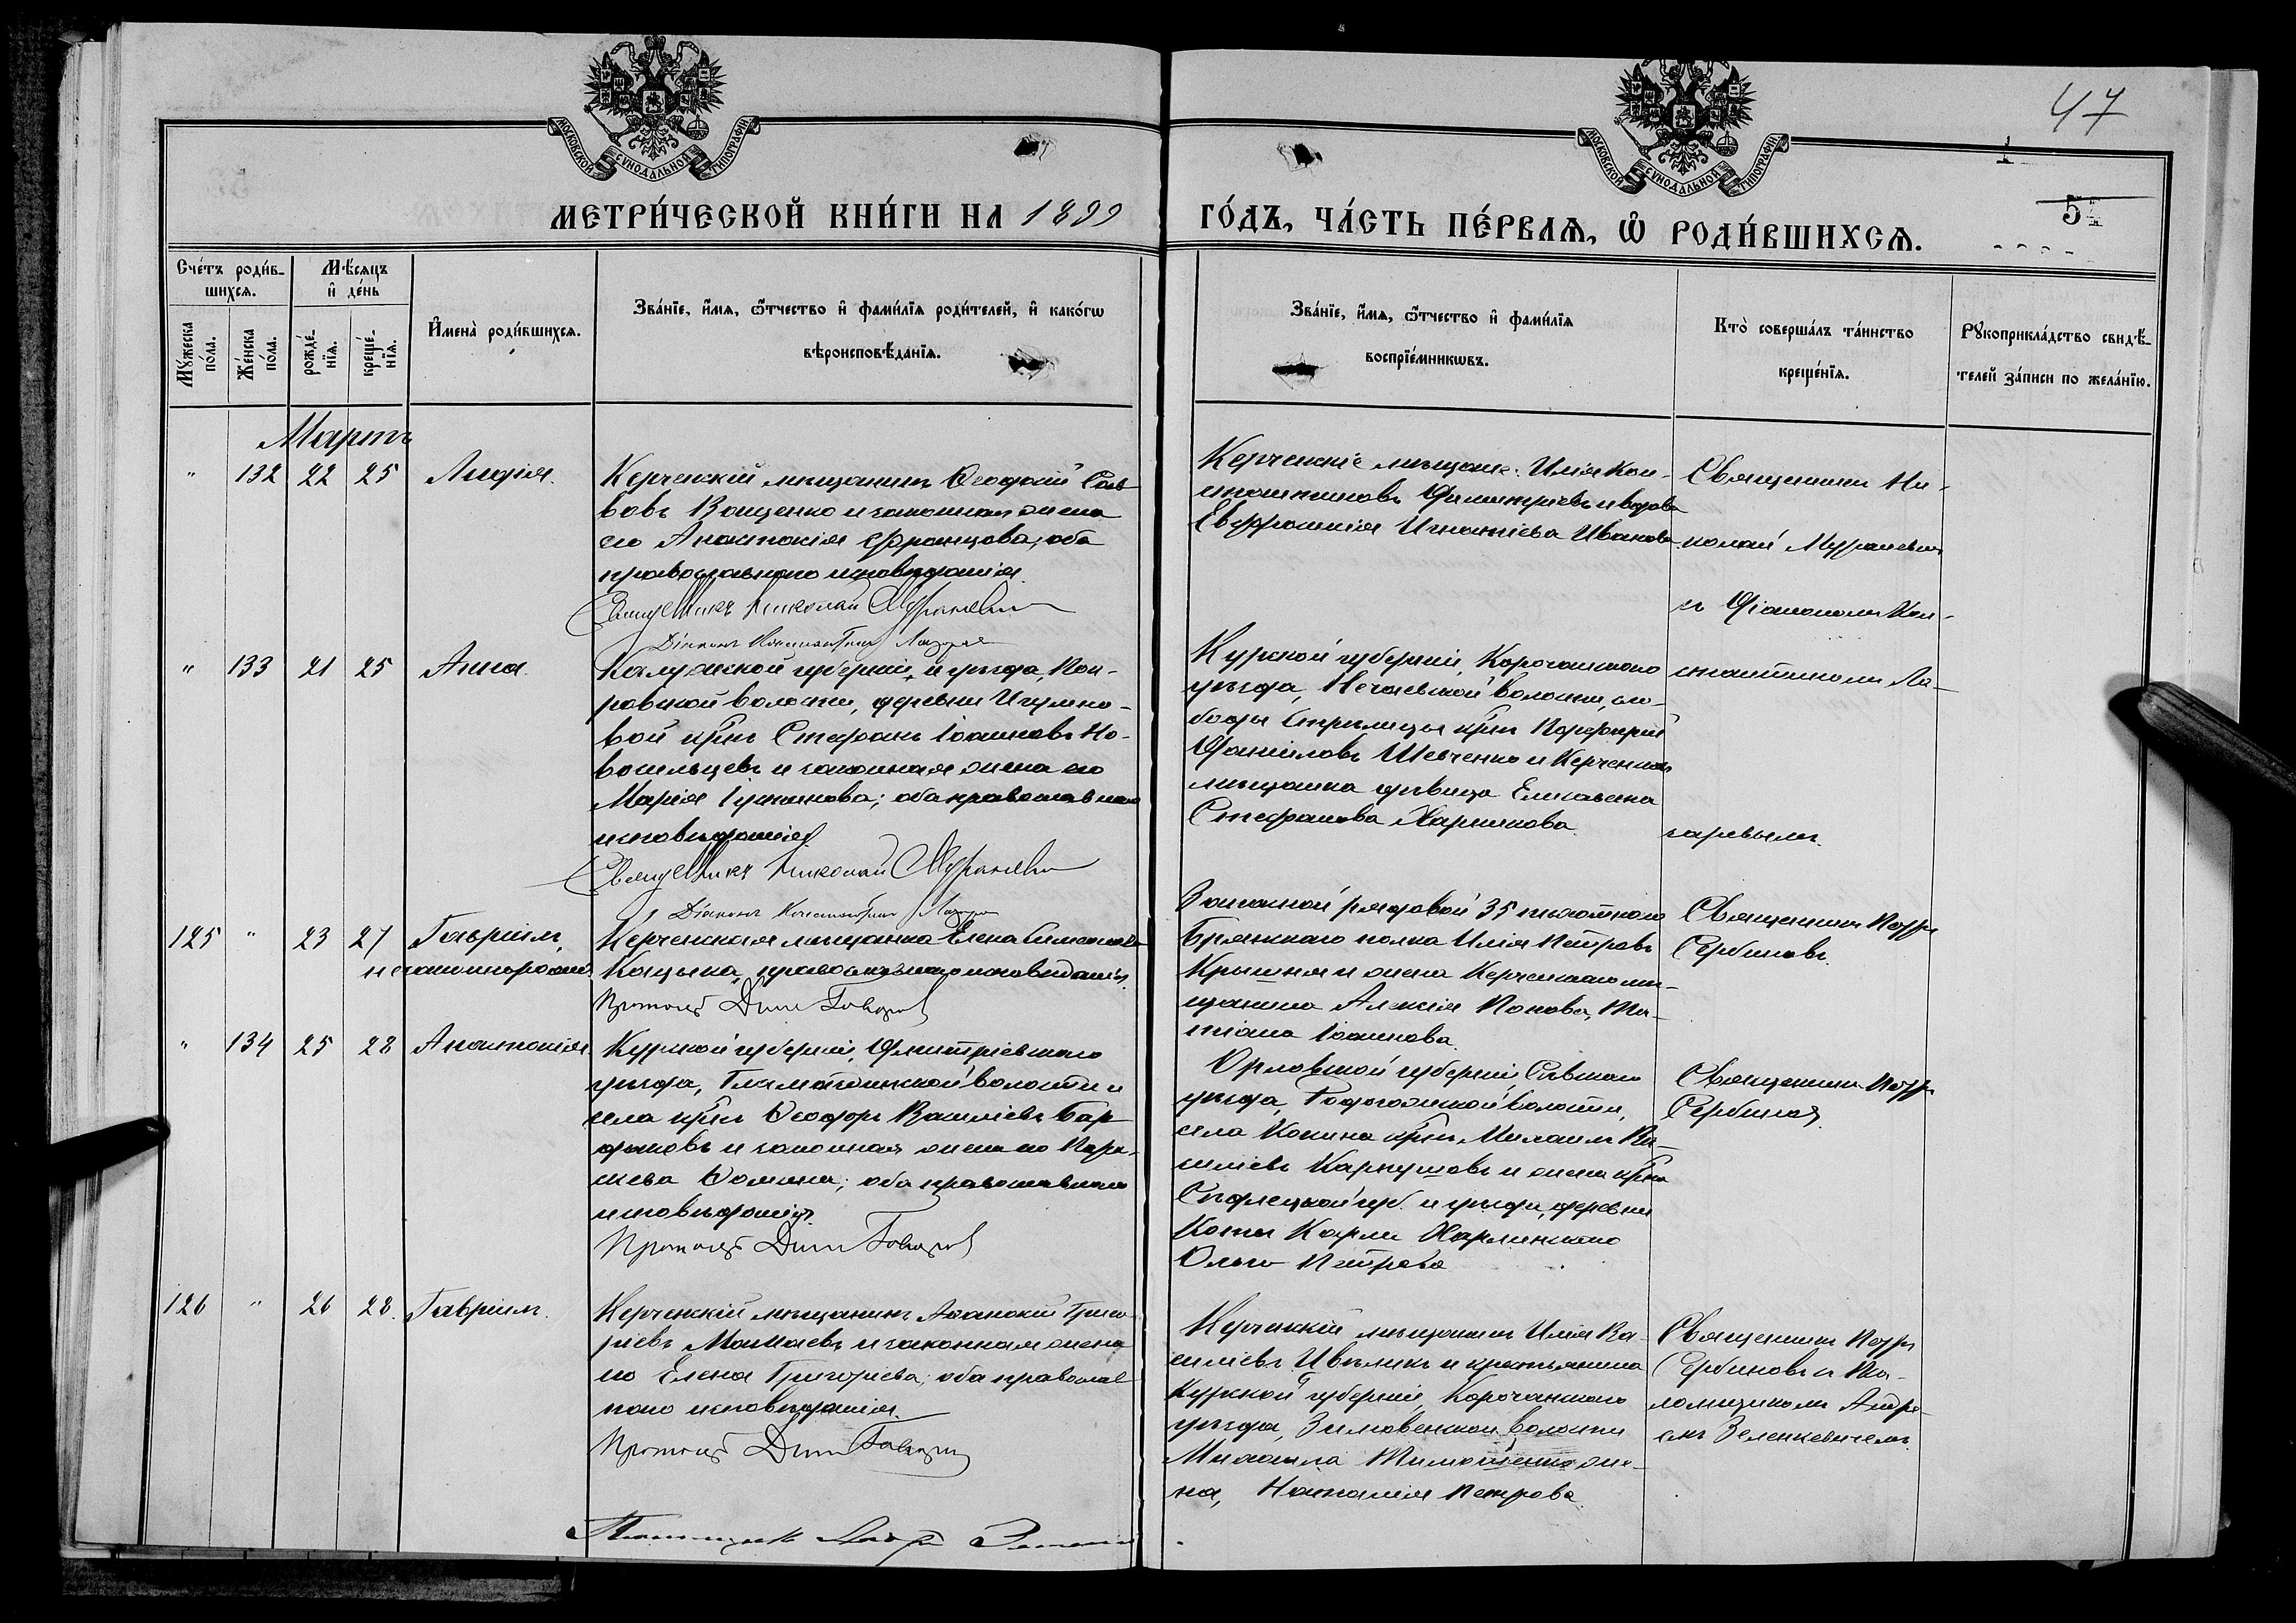 47
МОСКОВСКОЙ СѴНОДАЛЬНОЙ ТИПОГРАФІИ
МОСКОВСКОЙ СѴНОДАЛЬНОЙ ТИПОГРАФІИ
5
МЕТРИ́ЧЕСКОЙ КНИ́ГИ НА 1899 ГО́ДЪ, ЧА́СТЬ ПЕ́РВАѦ, Ѡ҆ РОДИ́ВШИХСѦ.
Сче́тъ роди́в-
шихсѧ.
Мꙋ́жеска по́ла.
Же́нска по́ла.
Мѣ́сѧцъ и҆ де́нь
рожде́-нїѧ.
креще́-нїѧ.
И҆мена̀ роди́вшихсѧ.
Зва́нїе, и҆́мѧ, ѻ҆́тчество и҆ фами́лїѧ роди́телей, и҆ како́гѡ
вѣроисповѣ́данїѧ.
Зва́нїе, и҆́мѧ, ѻ҆́тчество и҆ фами́лїѧ
воспрїе́мникѡвъ.
Кто̀ соверша́лъ та́инство
креще́нїѧ.
Рꙋкоприкла́дство свидѣ́-
телей за́писи по жела́нїю.
Мартъ
" 132 22 25 Лидія.
Керченскій мѣщанинъ Ѳеодосій Сав-
вовъ Ващенко и законная жена
его Анастасія Францова; оба
православнаго исповѣданія.
Священникъ Николай
Діаконъ Константинъ
Керченскіе мѣщане: Илія Кон-
стантиновъ Димитріевъ и вдова
Евфросинія Игнатіева Иванова.
Священникъ Ни-
колай
съ Діакономъ Кон-
стантиномъ Ла-
заревымъ.
" 133 21 25 Анна.
Калужской губерніи, и уѣзда, Пок-
ровской волости, деревни
вой крн Стефанъ Іоанновъ Но-
восильцевъ и законная жена его
Марія Іустинова; оба православнаго
исповѣданія.
Священникъ Николай
Діаконъ Константинъ
Курской губерніи, Корочанскаго
уѣзда, Нечаевской волости, сло-
боды Стрѣлицы крн Порфирій
Даніиловъ Шевченко и Керченская
мѣщанка дѣвица Елисавета
Стефанова Харинкова.
125 " 23 27 Гавріилъ,
незаконнорожд.
Керченская мѣщанка Елена Симеонова
Кацыка, православнаго исповѣданія.
Протоіерей Дим
Запасной рядовой 35 пѣхотнаго
Брянскаго полка Илія Петровъ
Крышня и жена Керченскаго мѣ-
щанина Алексія Попова, Та-
тіана Іоаннова.
Священникъ Петръ
Сербиновъ.
" 134 25 28 Анастасія
Курской губерніи, Дмитріевскаго
уѣзда, волости и
села крн Ѳеодоръ Василіевъ Бар-
и законная жена его Парас-
кева Ѳомина; оба православнаго
исповѣданія.
Протоіерей Дим
Орловской губерніи, Сѣвскаго
уѣзда, волости,
села Кокина крн Михаилъ Ва-
силіевъ и жена крна
Сѣдлецкой губ. и уѣзда, деревни
Карла
Ольга Петрова
Священникъ Петръ
Сербиновъ
126 " 26 28. Гавріилъ.
Керченскій мѣщанинъ Аѳанасій Григо-
ріевъ Мамаевъ и законная жена
его Елена Григоріева; оба православ-
наго исповѣданія.
Протоіерей Дим
Керченскій мѣщанинъ Илія Ва-
силіевъ и крестьянина
Курской губерніи, Корочанскаго
уѣзда, Зимовенской волости
Михаила Тимошенко же-
на, Наталія Петрова.
Священникъ Петръ
Сербиновъ съ Пса-
ломщикомъ Андре-
емъ Зеленкевичемъ.